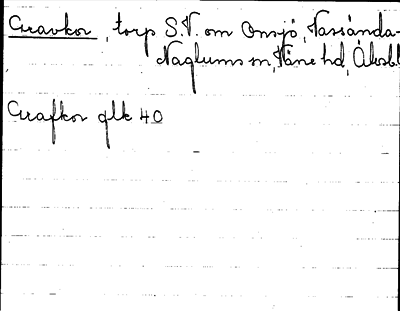 Gravkor, torp S.V. om Onsjö, Vassända-
Naglums sn, Väne hd, Älvsbl
Grafkor glk 40